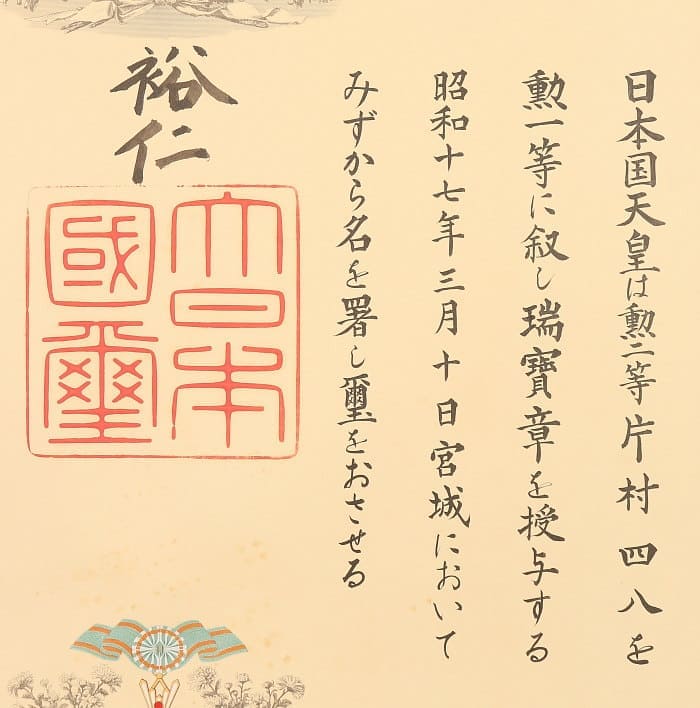 日本国天皇は勲二等片村四八を
勲一等に叙し瑞寶章を授与する
昭和十七年三月十日宮城において
みずから名を署し璽をおさせる
裕仁
大日本
國璽